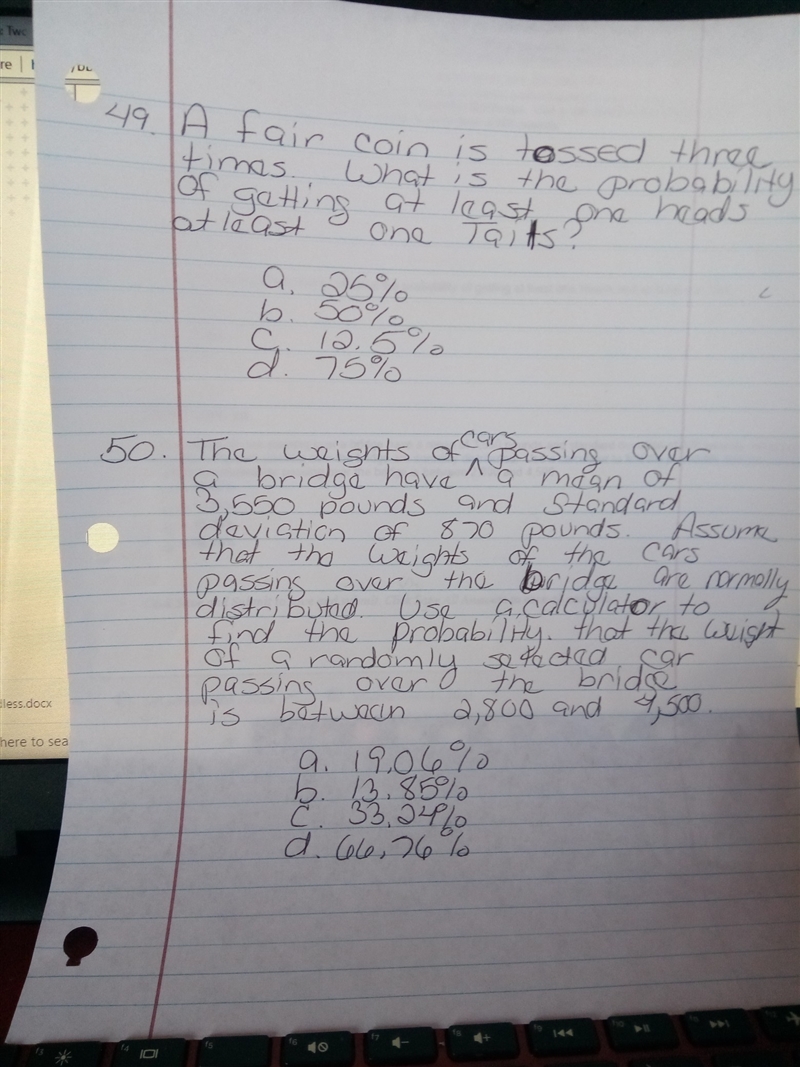 49. A fair coin is tossed three
times. What is the probability
of getting at least one heads
at least one Tails?
a. 25%
b. 50%
c. 12.5%
d. 75%
50. The weights of cars passing over
a bridge have a mean of
3,550 pounds and standard
deviation of 870 pounds. Assume
that the weights of the cars
passing over the bridge are normally
distributed. Use a calculator to
find the probability. that the weight
of a randomly selected car
passing over the bridge
is between 2,800 and 4,500.
a. 19.06%
b. 13.85%
c. 33.24%
d. 66.76%
dless.docx
here to sea